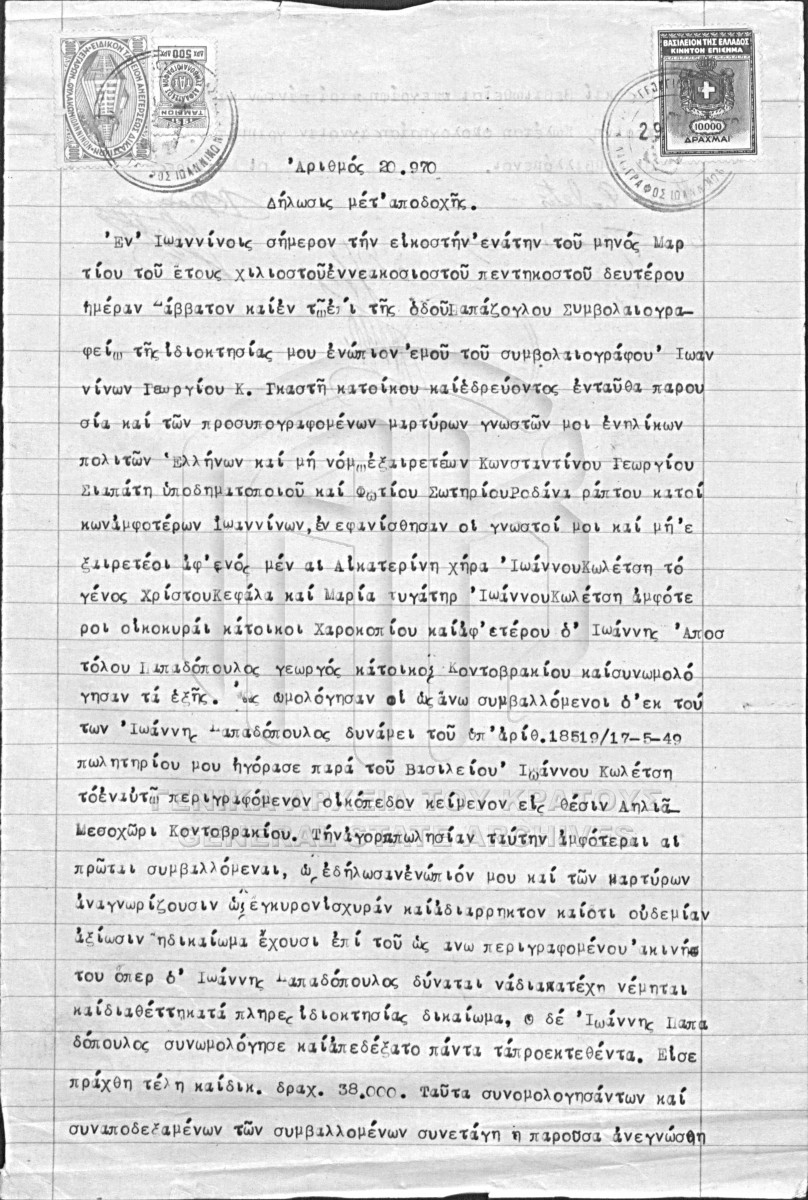 ΒΑΣΙΛΕΙΟΝ ΤΗΣ ΕΛΛΑΔΟΣ
ΚΙΝΗΤΟΝ ΕΠΙΣΗΜΑ
10000
ΔΡΑΧΜΑΙ
ΔΡΧ 500 ΔΡΧ
ΤΑΜΕΙΟΝ
Ἀριθμός 20.970
Δήλωσις μέτ'ἀποδοχῆς.
Ἐν' Ἰωαννίνοις σήμερον τήν εἰκοστήν'ενάτην τοῦ μηνός Μαρ
τίου τοῦ ἔτους χιλιοστοῦἐννεακοσιοστοῦ πεντηκοστοῦ δευτέρου
ἡμέραν Σάββατον καίἐν τῶἐπί τῆς ὁδοῦΠαπάζογλου Συμβολαιογρα-
φείω τῆςἰδιοκτησίας μου ἐνώπιον'εμοῦ τοῦ συμβολαιογράφου' Ιωαν
νίνων Γεωργίου Κ. Γκαστῆ κατοίκου καίἑδρεύοντος ἐνταῦθα παρου
σία καί τῶν προσυπογραφομένων μαρτύρων γνωστῶν μοι ἐνηλίκων
πολιτῶν Ἑλλήνων καί μή νόμωἐξαιρετέων Κωνσταντίνου Γεωργίου
Σιαπάτη ὑποδηματοποιοῦ καί Φωτίου ΣωτηρίουΡοδίνα ράπτου κατοί
κωνἀμφοτέρων Ἰωαννίνων,ἐνεφανίσθησαν οἱ γνωστοί μοι καί μή'ε
ξαιρετέοι ἀφ'ενός μέν αι Αἰκατερίνη χήρα ἸωάννουΚωλέτση τό
γένος ΧρίστουΚεφάλα καί Μαρία θυγάτηρ ἸωάννουΚωλέτση ἀμφότε
ροι οἰκοκυραί κάτοικοι Χαροκοπίου καίἀφ'ετέρου ὁ' Ιωάννης Ἀποσ
τόλου Παπαδόπουλος γεωργός κάτοικος Κοντοβρακίου καίσυνωμολό
γησαν τά ἑξῆς. Ὡς ὡμολόγησαν οἱ ὡςἄνω συμβαλλόμενοι ὁ'εκ τού
των Ἰωάννης Παπαδόπουλος δυνάμει τοῦ ὑπ'ἀρίθ.18519/17-5-49
πωλητηρίου μου ἠγόρασε παρά τοῦ Βασιλείου' Ιωάννου Κωλέτση
τόἐναὐτῶ περιγραφόμενον οἰκόπεδον κείμενον εἰς θέσιν Ἀηλιᾶ
Μεσοχῶρι Κοντοβρακίου. Τήνἀγοραπωλησίαν ταύτην ἀμφότεραι αι
πρῶται συμβαλλόμεναι, ὡς ἐδήλωσανἐνώπιόν μου καί τῶν μαρτύρων
ἀναγνωρίζουσιν ὡς ἔγκυρονἰσχυράν καίἀδιάρρηκτον καίὅτι οὐδεμίαν
ἀξίωσιν ἤδικαίωμα ἔχουσι ἐπί τοῦ ὡς ανω περιγραφομένου'ακινή
του ὅπερ ὁ' Ιωάννης Παπαδόπουλος δύναται νάδιακατέχη νέμηται
καίδιαθέττηκατά πλῆρες ἰδιοκτησίας δικαίωμα, ὁ δέ Ἰωάννης Παπα
δόπουλος συνωμολόγησε καίἀπεδέξατο πάντα τάπροεκτεθέντα. Εἰσε
πράχθη τέλη καίδικ. δραχ. 38.000. Ταῦτα συνομολογησάντων καί
συναποδεξαμένων τῶν συμβαλλομένων συνετάγη ἡ παροῦσα ἀνεγνώσθη
ΓΕΝΙΚΑ ΑΡΧΕΙΑ ΤΟΥ ΚΡΑΤΟΥΣ
GENERAL STATE ARCHIVES